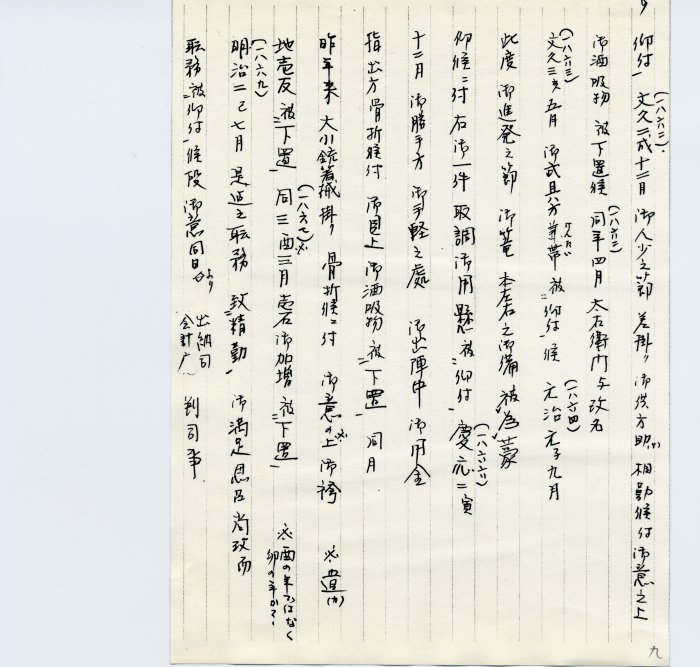 9
仰付 文久二戌十二月 御人少之節 差掛り 御供方助 相勤候付 御意之上
(一八六二)
御酒吸物 被下置候 同年四月 太右衛門与改名
(一八六二)
文久三亥五月 御武具方兼帯 被仰付候 元治元子九月
(一八六三)
けんたい
(一八六四)
此度 御進発之節 御篭 本左右之御備 被為蒙
仰候ニ付 右御一件 取調御用懸 被仰付 慶応二寅
(一八六六)
十二月 御勝手方 御手軽之處 御出陣中 御用金
指出方 骨折候付 御目上 御酒吸物 被下置 同月
昨年来 大小銃器械掛り 骨折候ニ付 御意の上 御袴
※遣(カ)
地壱反 被下置 同三酉三月 壱石御加増 被下置
(一八六七)※
※酉の年ではなく
卯の年かで
明治二巳七月 是迄之職務 致精勤 御満足思召 尚改而
(一八六九)
職務 被仰付候段 御意同日より
出納司
会計庁 判司事
九